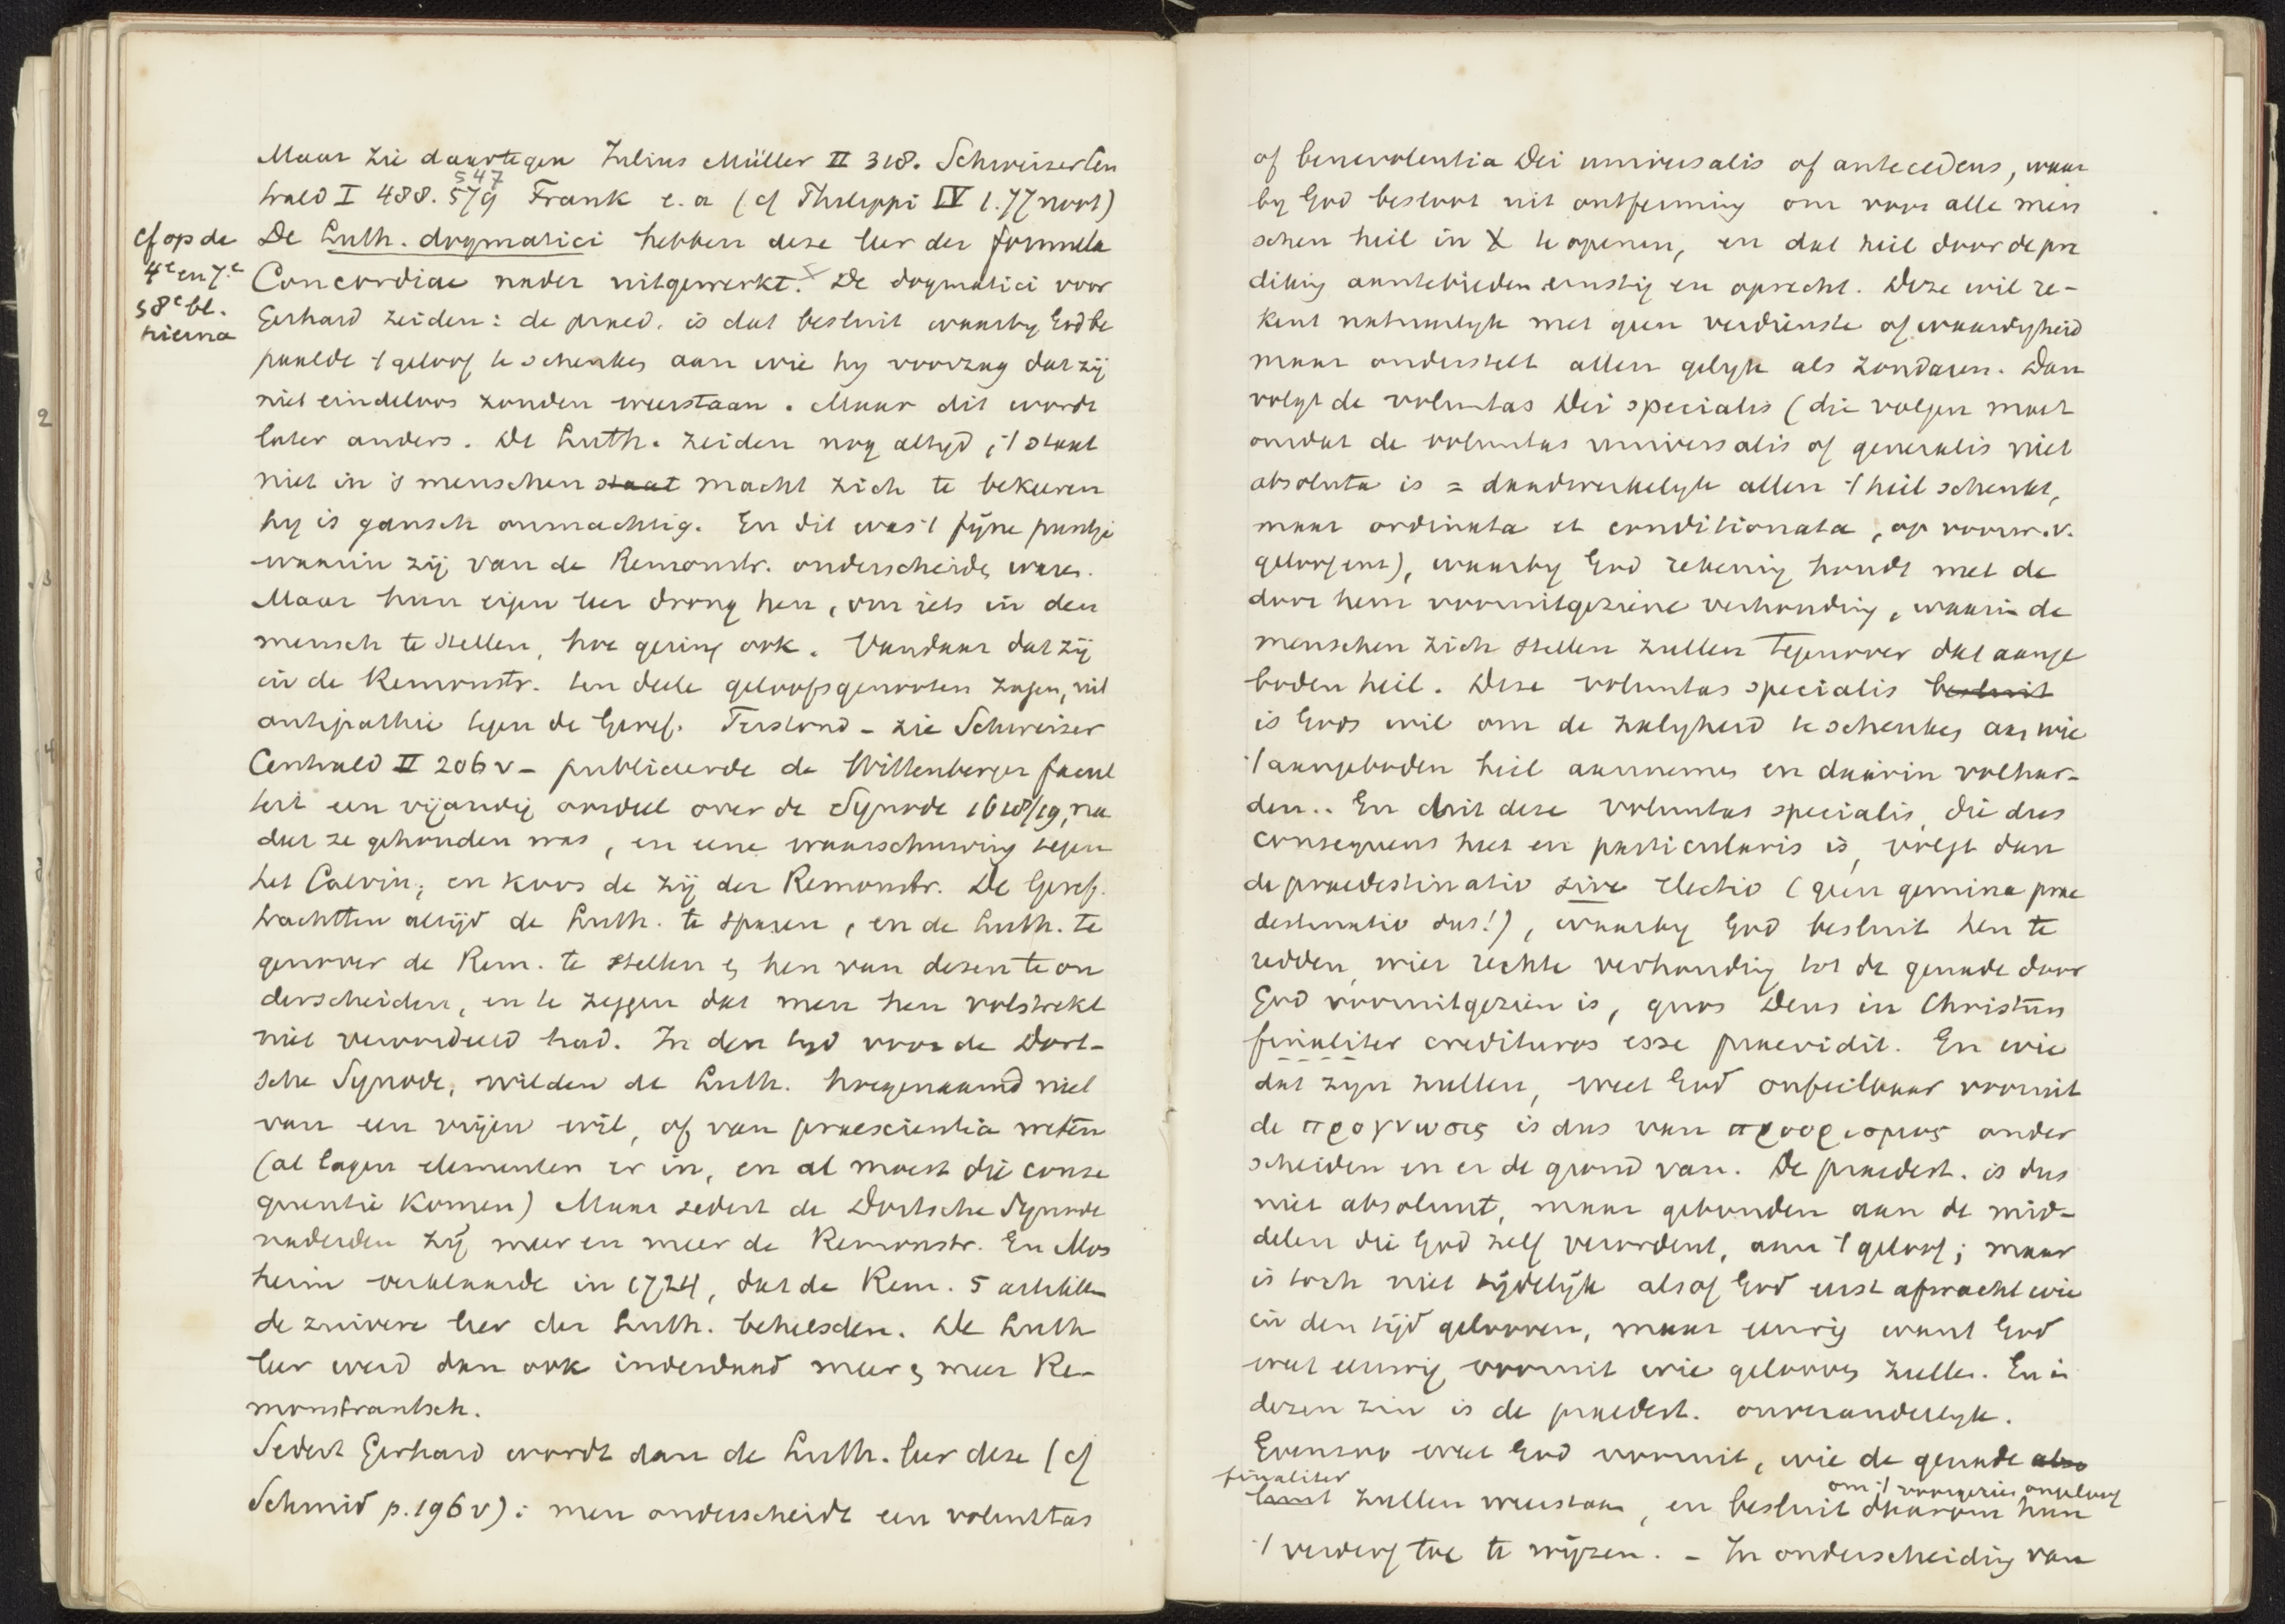 Maar zie daartegen Julius Müller II 318. Schweizer Cen
547
trald I 488. 579 Frank e. a (cf Philippi IV 1. 77 noot)
cf op de
4e en 7e
58e bl.
hierna
De Luth. dogmatici hebben deze leer der formula
Concordiae nader uitgewerkt. × De dogmatici voor
Gerhard zeiden: de praed. is dat besluit waarby God be
paalde 't geloof te schenken aan wie hy voorzag dat zij
niet eindeloos zouden weerstaan. Maar dit wordt
later anders. De Luth. zeiden nog altyd, 't staat
niet in 's menschen staat macht zich te bekeeren
hy is gansch onmachtig. En dit was 't fijne puntje
waarin zij van de Remonstr. onderscheiden waren.
Maar hun eigen leer drong hen, om iets in den
mensch te stellen, hoe gering ook. Vandaar dat zij
in de Remonstr. ten deele geloofsgenooten zagen, uit
antipathie tegen de Geref. Terstond – zie Schweizer
Centrald II 206 v – publiceerde de Wittenberger facul
teit een vijandig oordeel over de Synode 1618/19, na
dat ze gehouden was, en eene waarschuwing tegen
het Calvin, en koos de zij der Remonstr. De Geref.
trachtten altijd de Luth. te sparen, en de Luth. te
genover de Rem. te stellen en hen van dezen te on
derscheiden, en te zeggen dat men hen volstrekt
niet veroordeeld had. In den tyd voor de Dort-
sche Synode, wilden de Luth. hoegenaamd niet
van een vrijen wil, of van praescientia weten
(al lagen elementen er in, en al moest die conse
quentie komen) Maar sedert de Dortsche Synode
naderden zij meer en meer de Remonstr. En Mos
heim verklaarde in 1724, dat de Rem. 5 artikelen
de zuivere leer der Luth. behelsden. De Luth
leer werd dan ook inderdaad meer en meer Re-
monstrantsch.
Sedert Gerhard wordt dan de Luth. leer deze (cf
Schmid p. 196 v): men onderscheidt een voluntas
of benevolentia Dei universalis of antecedens, waar
by God besloot uit ontferming om voor alle men
schen heil in X te openen, en dat heil door de pre
diking aantebieden ernstig en oprecht. Deze wil re-
kent natuurlyk met geen verdienste of waardigheid
maar onderstelt allen gelyk als zondaren. Dan
volgt de voluntas Dei specialis (die volgen moet
omdat de voluntas universalis of generalis niet
absoluta is = daadwerkelyk allen 't heil schenkt,
maar ordinata et conditionata, op voorw. v.
geloof enz), waarby God rekening houdt met de
door hem vooruitgeziene verhouding, waarin de
menschen zich stellen zullen tegenover dat aange
boden heil. Deze voluntas specialis besluit
is Gods wil om de zaligheid te schenken aan wie
't aangeboden heil aannemen en daarin volhar-
den.. En uit deze voluntas specialis, die dus
consequens heet en particularis is, volgt dan
de praedestinatio sive electio (geen gemina prae
destinatio dus!), waarby God besluit hen te
redden, wier rechte verhouding tot de genade door
God vooruitgezien is, quos Deus in Christum
finaliter credituros esse praevidit. En wie
dat zyn zullen, weet God onfeilbaar vooruit
de προγνωσις is dus van προορισμος onder
scheiden en er de grond van. De praedest. is dus
niet absoluut, maar gebonden aan de mid-
delen die God zelf verordent, aan 't geloof; maar
is toch niet tijdelijk alsof God eerst afwacht wie
in den tijd gelooven, maar eeuwig want God
weet eeuwig vooruit wie gelooven zullen. En in
dezen zin is de praedest. onveranderlyk.
Evenzoo weet God vooruit, wie de genade
finaliter
zullen weerstaan, en besluit daarom hun
om 't voorgezien ongeloof
't verderf toe te wijzen. – In onderscheiding van